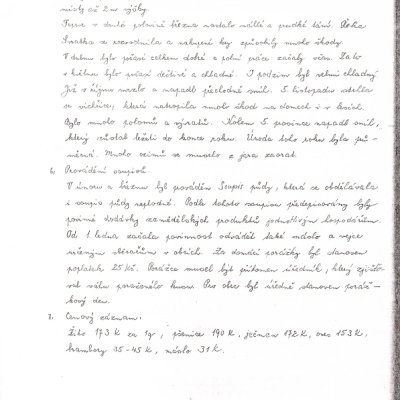 místy až 2 m výšky.
Teprve v druhé polovině března nastalo náhlé a prudké tání. Řeka
Svratka se rozvodnila a nakupené kry způsobily mnoho škody.
V dubnu bylo počasí celkem dobré a polní práce začaly včas. Za to
v květnu bylo počasí deštivé a chladné. I podzim byl velmi chladný
Již v říjnu mrzlo a napadl přechodně sníh. 5. listopadu strhla
se vichřice, která nakupila mnoho škod na domech i v lesích.
Bylo mnoho polomů a vývratů. Kolem 5. prosince napadl sníh,
který zůstal ležeti do konce roku. Úroda toho roku byla prů-
měrná. Mnoho ozimů se muselo z jara zaorat.
6, Provádění soupisů
V únoru a březnu byl prováděn Soupis půdy, která se obdělávala
i soupis půdy neplodné. Podle tohoto soupisu předepisovány byly
povinné dodávky zemědělských produktů jednotlivým hospodářům.
Od 1. ledna začala povinnost odváděti také máslo a vejce
určeným sběračům v obcích. Za domácí porážky byl stanoven
poplatek 25 Kč. Porážce musel být přítomen úředník, který zjišťo-
val váhu poraženého kusu. Pro obec byl úředně stanoven poráž-
kový den.
7. Cenový záznam.
Žito 173 K za 1q, pšenice 190 K, ječmen 172 K, oves 153 K,
brambory 35-45 K, máslo 31 K.